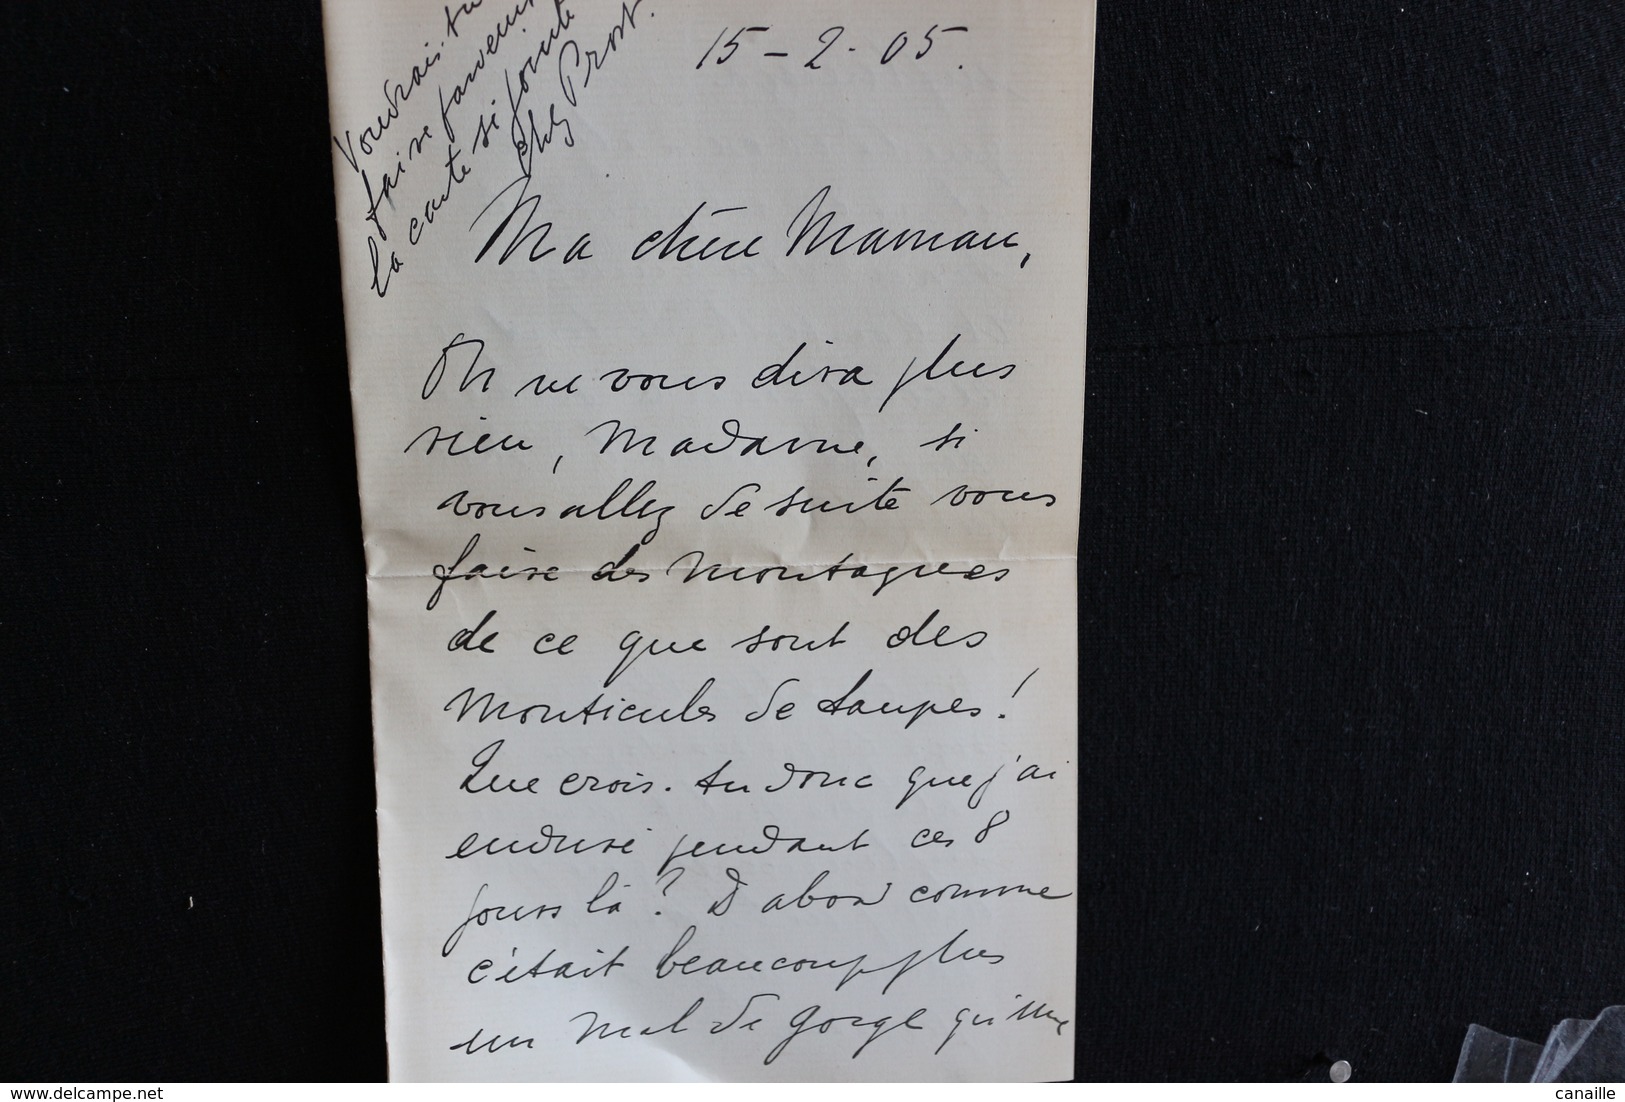 Voudrais-tu
faire parvenir
la carte si jointe
chez Prost.
15-2-05.
Ma chère Maman,
On ne vous dira plus
rien, Madame, si
vous allez de suite vous
faire des montagnes
de ce que sont des
monticules de taupes!
Que crois-tu donc que j'ai
enduré pendant ces 8
jours là? D'abord comme
c'était beaucoup plus
un mal de gorge qu'une
canaille
delcampe.net